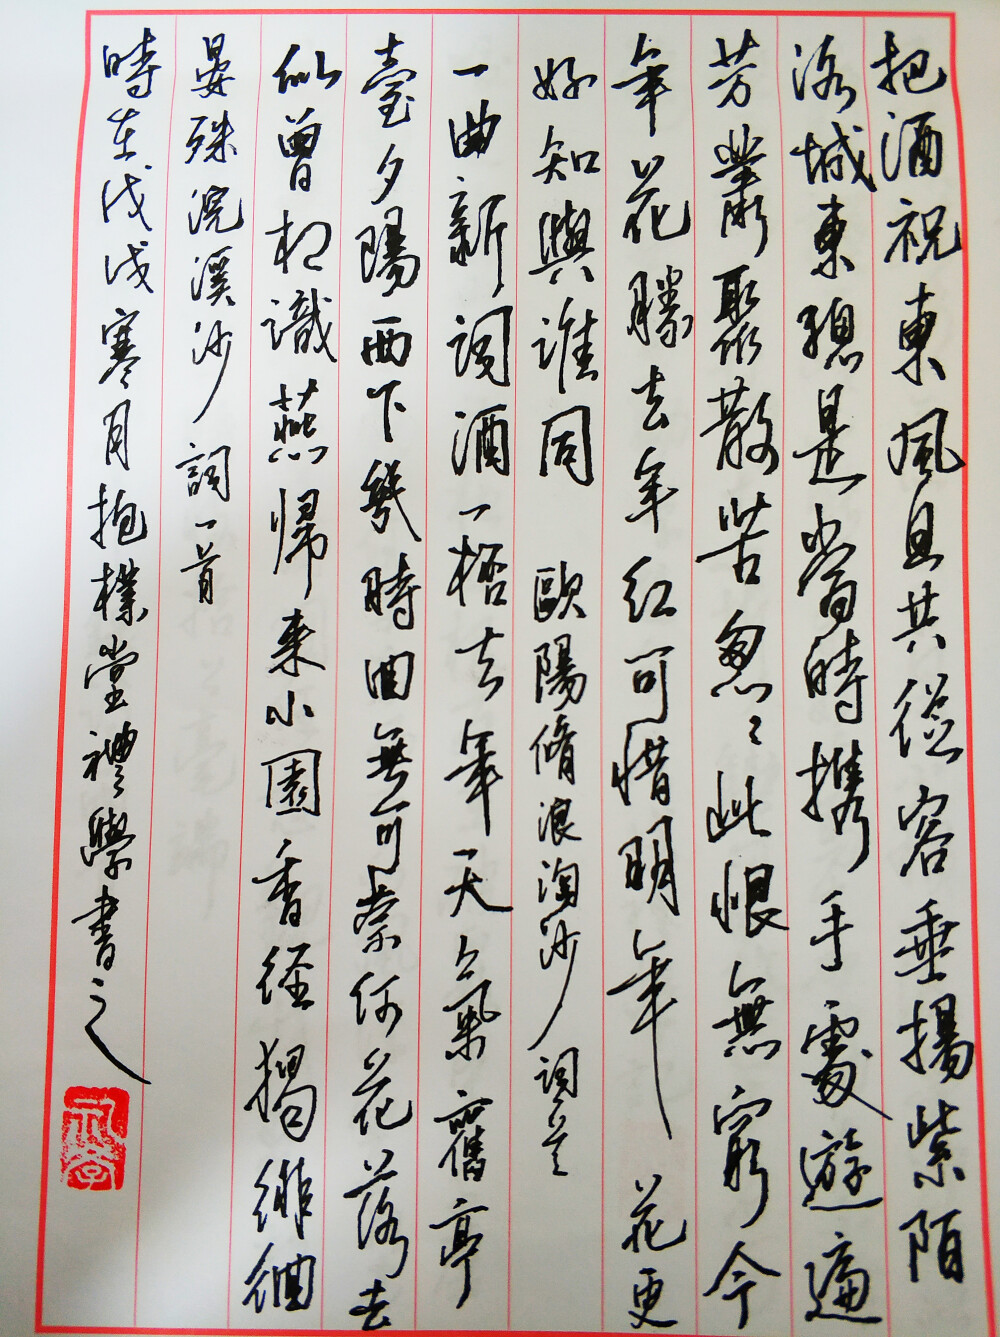 把酒祝東風且共從容垂揚紫陌
洛城東總是當時携手處遊遍
芳叢聚散苦怱〻此恨無窮今
年花勝去年紅可惜明年花更
好知與誰同　歐陽脩浪淘沙詞意
一曲新詞酒一桮去年天气舊亭
臺夕陽西下幾時囬無可柰何花落去
似曾相識燕歸來小園香徑獨徘徊
晏殊浣溪沙詞一首
時在戊戌寒月抱樸堂禮學書之
礼學